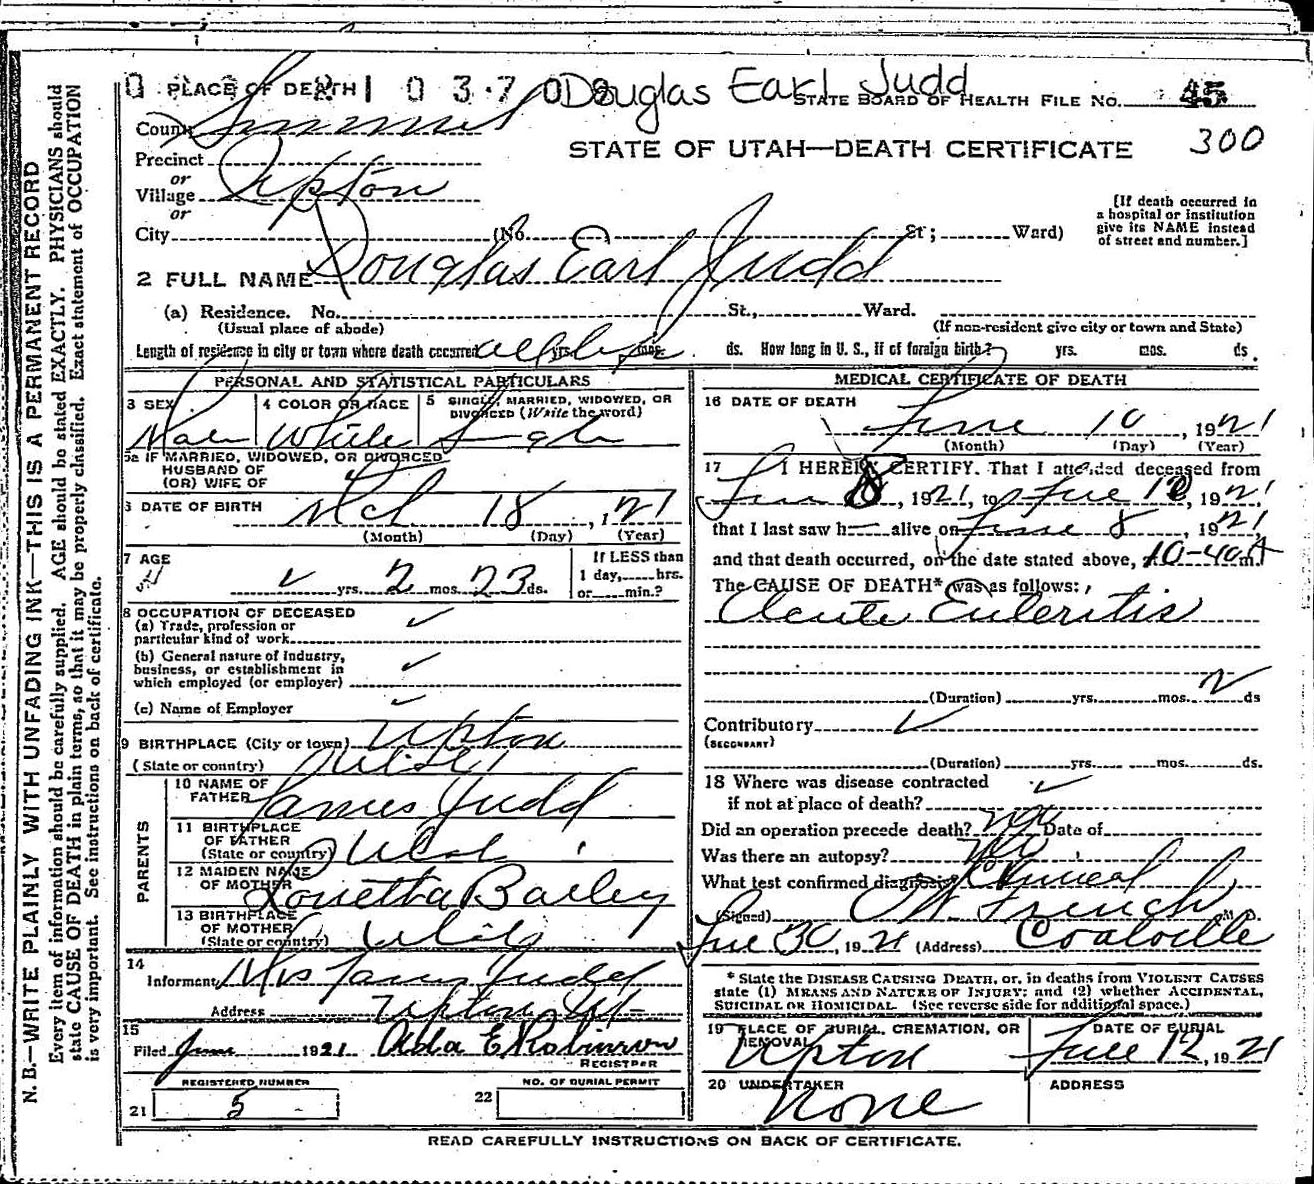 0 PLACE OF DEATH 21 0 3 7 0 0 Douglas Earl Judd
STATE BOARD OF HEALTH FILE NO. 45
County Summit
STATE OF UTAH—DEATH CERTIFICATE 300
Precinct
or
Village Upton
or
City (No. St; Ward)
[If death occurred in
a hospital or institution
give its NAME instead
of street and number.]
2 FULL NAME Douglas Earl Judd
(a) Residence. No. St., Ward.
(Usual place of abode) (If non-resident give city or town and State)
Length of residence in city or town where death occurred all life yrs. mos. ds. How long in U. S., if of foreign birth? yrs. mos. ds.
PERSONAL AND STATISTICAL PARTICULARS
3 SEX 4 COLOR OR RACE 5 SINGLE, MARRIED, WIDOWED, OR
DIVORCED (Write the word)
Male White Single
5a IF MARRIED, WIDOWED, OR DIVORCED
HUSBAND OF
(OR) WIFE OF
6 DATE OF BIRTH Mch 18, 1921
(Month) (Day) (Year)
7 AGE If LESS than
1 day, hrs.
yrs. 2 mos. 23 ds. or min.?
8 OCCUPATION OF DECEASED
(a) Trade, profession or
particular kind of work
(b) General nature of Industry,
business, or establishment in
which employed (or employer)
(c) Name of Employer
9 BIRTHPLACE (City or town) Upton
(State or country) Utah
PARENTS
10 NAME OF
FATHER James Judd
11 BIRTHPLACE
OF FATHER
(State or country) Utah
12 MAIDEN NAME
OF MOTHER Louetta Bailey
13 BIRTHPLACE
OF MOTHER
(State or country) Utah
14
Informant Mrs James Judd
Address Upton Ut
15
Filed June 1921 Abba E Robinson
REGISTRAR
REGISTERED NUMBER NO. OF BURIAL PERMIT
21 5 22
MEDICAL CERTIFICATE OF DEATH
16 DATE OF DEATH
June 10, 1921
(Month) (Day) (Year)
17 I HEREBY CERTIFY. That I attended deceased from
June 8, 1921, to June 10, 1921
that I last saw h alive on June 8, 1921
and that death occurred, on the date stated above, 10-40 A m.
The CAUSE OF DEATH* was as follows:
Acute Enteritis
(Duration) yrs. mos. 2 ds
Contributory
(SECONDARY)
(Duration) yrs. mos. ds.
18 Where was disease contracted
if not at place of death?
Did an operation precede death? no Date of
Was there an autopsy? no
What test confirmed diagnosis? Clinical
(Signed) W. French M. D.
June 30, 1921 (Address) Coalville
* State the DISEASE CAUSING DEATH, or, in deaths from VIOLENT CAUSES
state (1) MEANS AND NATURE OF INJURY; and (2) whether ACCIDENTAL,
SUICIDAL OR HOMICIDAL. (See reverse side for additional space.)
19 PLACE OF BURIAL, CREMATION, OR
REMOVAL DATE OF BURIAL
Upton June 12, 1921
20 UNDERTAKER ADDRESS
None
READ CAREFULLY INSTRUCTIONS ON BACK OF CERTIFICATE.
N. B.—WRITE PLAINLY WITH UNFADING INK—THIS IS A PERMANENT RECORD
Every item of information should be carefully supplied. AGE should be stated EXACTLY. PHYSICIANS should
state CAUSE OF DEATH in plain terms, so that it may be properly classified. Exact statement of OCCUPATION
is very important. See instructions on back of certificate.